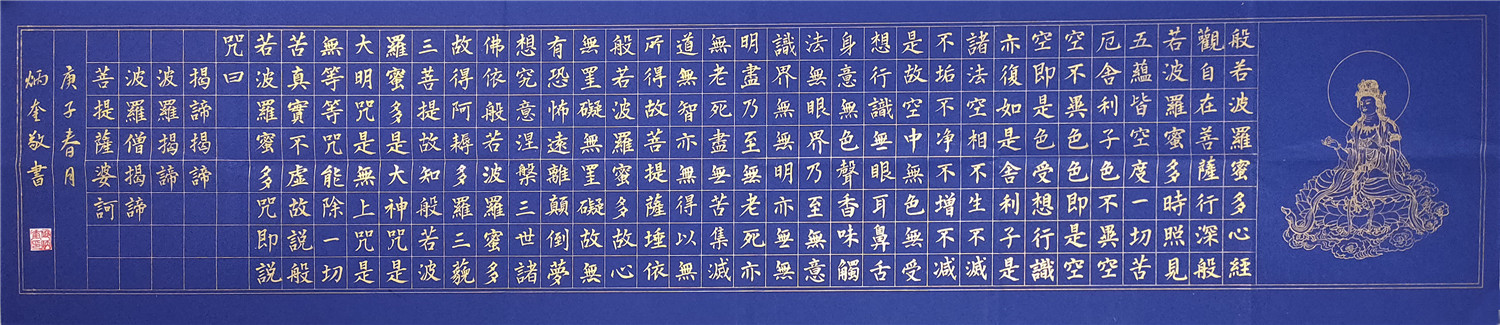 般若波羅蜜多心經
觀自在菩薩行深般
若波羅蜜多時照見
五蘊皆空度一切苦
厄舍利子色不異空
空不異色色即是空
空即是色受想行識
亦復如是舍利子是
諸法空相不生不滅
不垢不净不增不减
是故空中無色無受
想行識無眼耳鼻舌
身意無色聲香味觸
法無眼界乃至無意
識界無無明亦無無
明盡乃至無老死亦
無老死盡無苦集滅
道無智亦無得以無
所得故菩提薩埵依
般若波羅蜜多故心
無罣礙無罣礙故無
有恐怖遠離顛倒夢
想究意涅槃三世諸
佛依般若波羅蜜多
故得阿耨多羅三藐
三菩提故知般若波
羅蜜多是大神咒是
大明咒是無上咒是
無等等咒能除一切
苦真實不虛故說般
若波羅蜜多咒即說
咒曰
揭諦揭諦
波羅揭諦
波羅僧揭諦
菩提薩婆訶
庚子春月
炳奎敬書